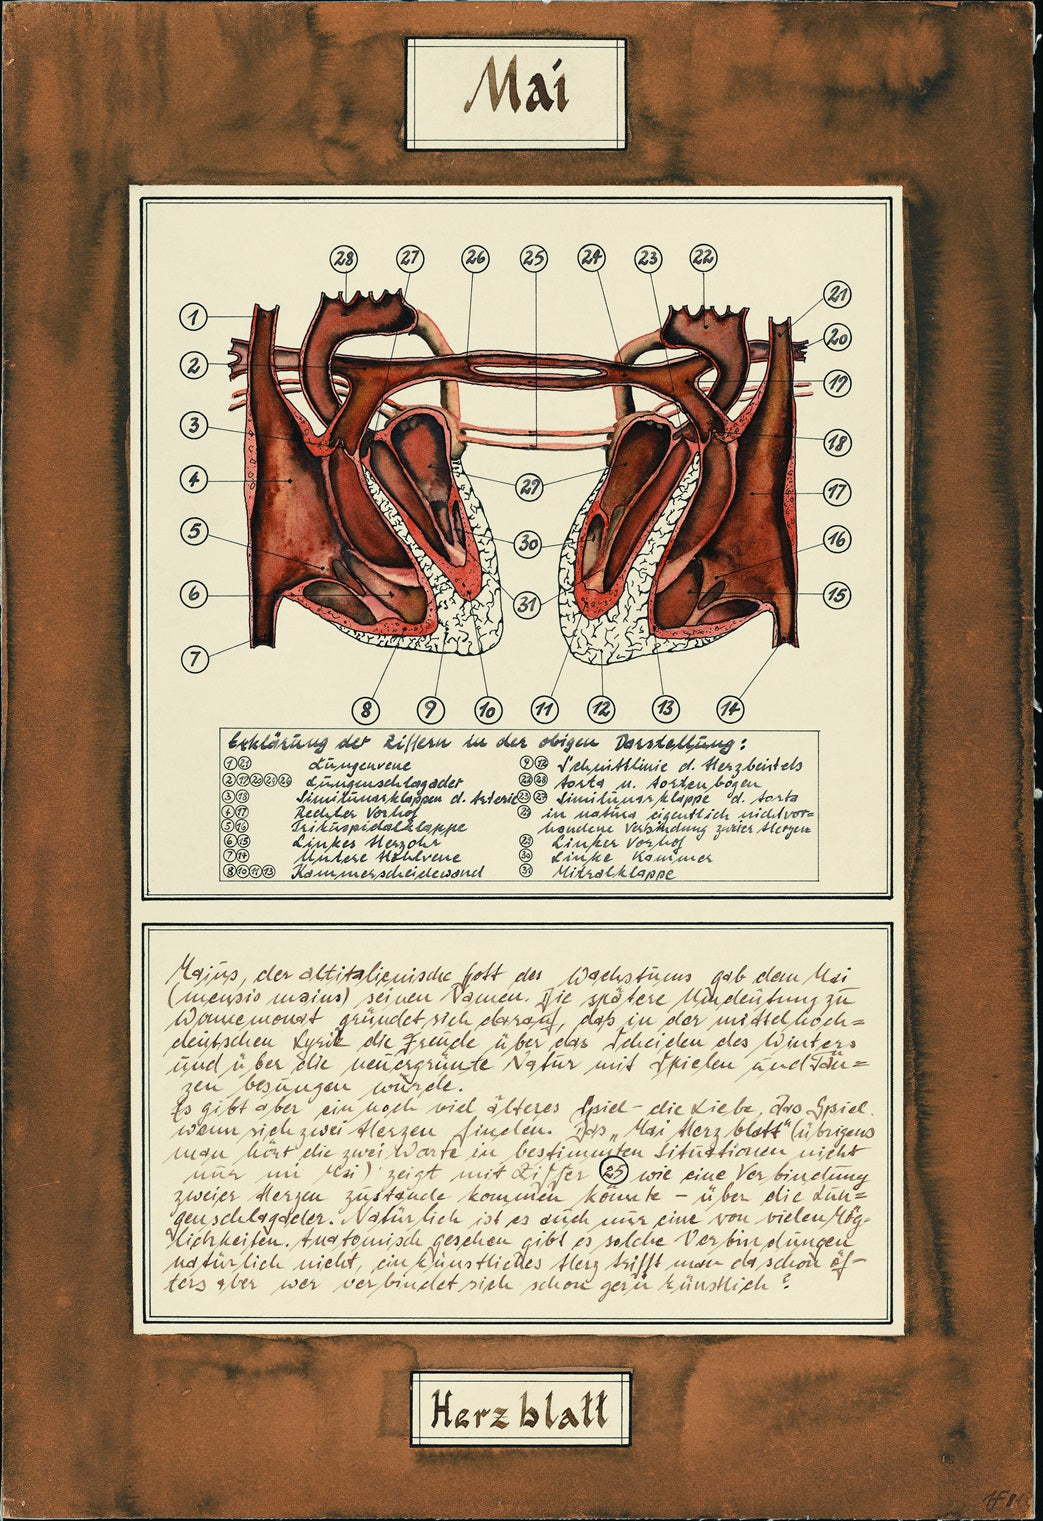 Mai
28 27 26 25 24 23 22
1 21
2 20
19
3 18
4 29 17
5 30 16
6 31 15
7
8 9 10 11 12 13 14
Erklärung der Ziffern in der obigen Darstellung:
1 21 Lungenvene
2 19 20 24 26 Lungenschlagader
3 18 Similunarklappen d. Arterie
4 17 Rechter Vorhof
5 16 Trikuspidalklappe
6 15 Linkes Herzohr
7 14 Untere Hohlvene
8 10 11 13 Kammerscheidewand
9 12 Schnittlinie d. Herzbeutels
22 28 Aorta u. Aortenbögen
23 27 Similunarklappe d. Aorta
25 in natura eigentlich nichtvor=
handene Verbindung zweier Herzen
29 Linker Vorhof
30 Linke Kammer
31 Mitralklappe
Majus, der altitalienische Gott des Wachstums gab dem Mai
(mensis maius) seinen Namen. Die spätere Umdeutung zu
Wonnemonat gründet sich darauf, daß in der mittelhoch=
deutschen Lyrik die Freude über das Scheiden des Winters
und über die neuergrünte Natur mit Spielen und Tän=
zen besungen wurde.
Es gibt aber ein noch viel älteres Spiel - die Liebe, das Spiel
wenn sich zwei Herzen finden. Das „Mai Herzblatt" (übrigens
man hört die zwei Worte in bestimmten Situationen nicht
nur im Mai) zeigt mit Ziffer 25 wie eine Verbindung
zweier Herzen zustande kommen könnte - über die Lun=
genschlagader. Natürlich ist es auch nur eine von vielen Mög-
lichkeiten. Anatomisch gesehen gibt es solche Verbindungen
natürlich nicht, ein künstliches Herz trifft man da schon öf-
ters aber wer verbindet sich schon gern künstlich?
Herzblatt